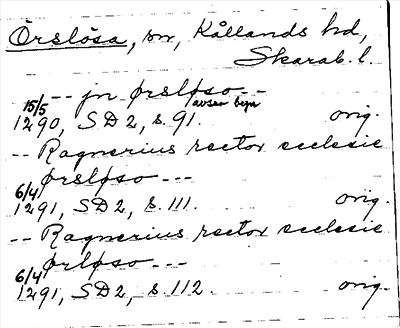 Örslösa, sn, Kållands hd,
Skarab. l.
-- jn ørsløso --
15/5 avser byn
1290, SD2, s. 91. orig.
-- Ragnerius rector ecclesie
ørsløso ---
6/4
1291, SD2, s. 111. orig.
-- Ragnerius rector ecclesie
ørløso ---
6/4
1291, SD2, s. 112. orig.